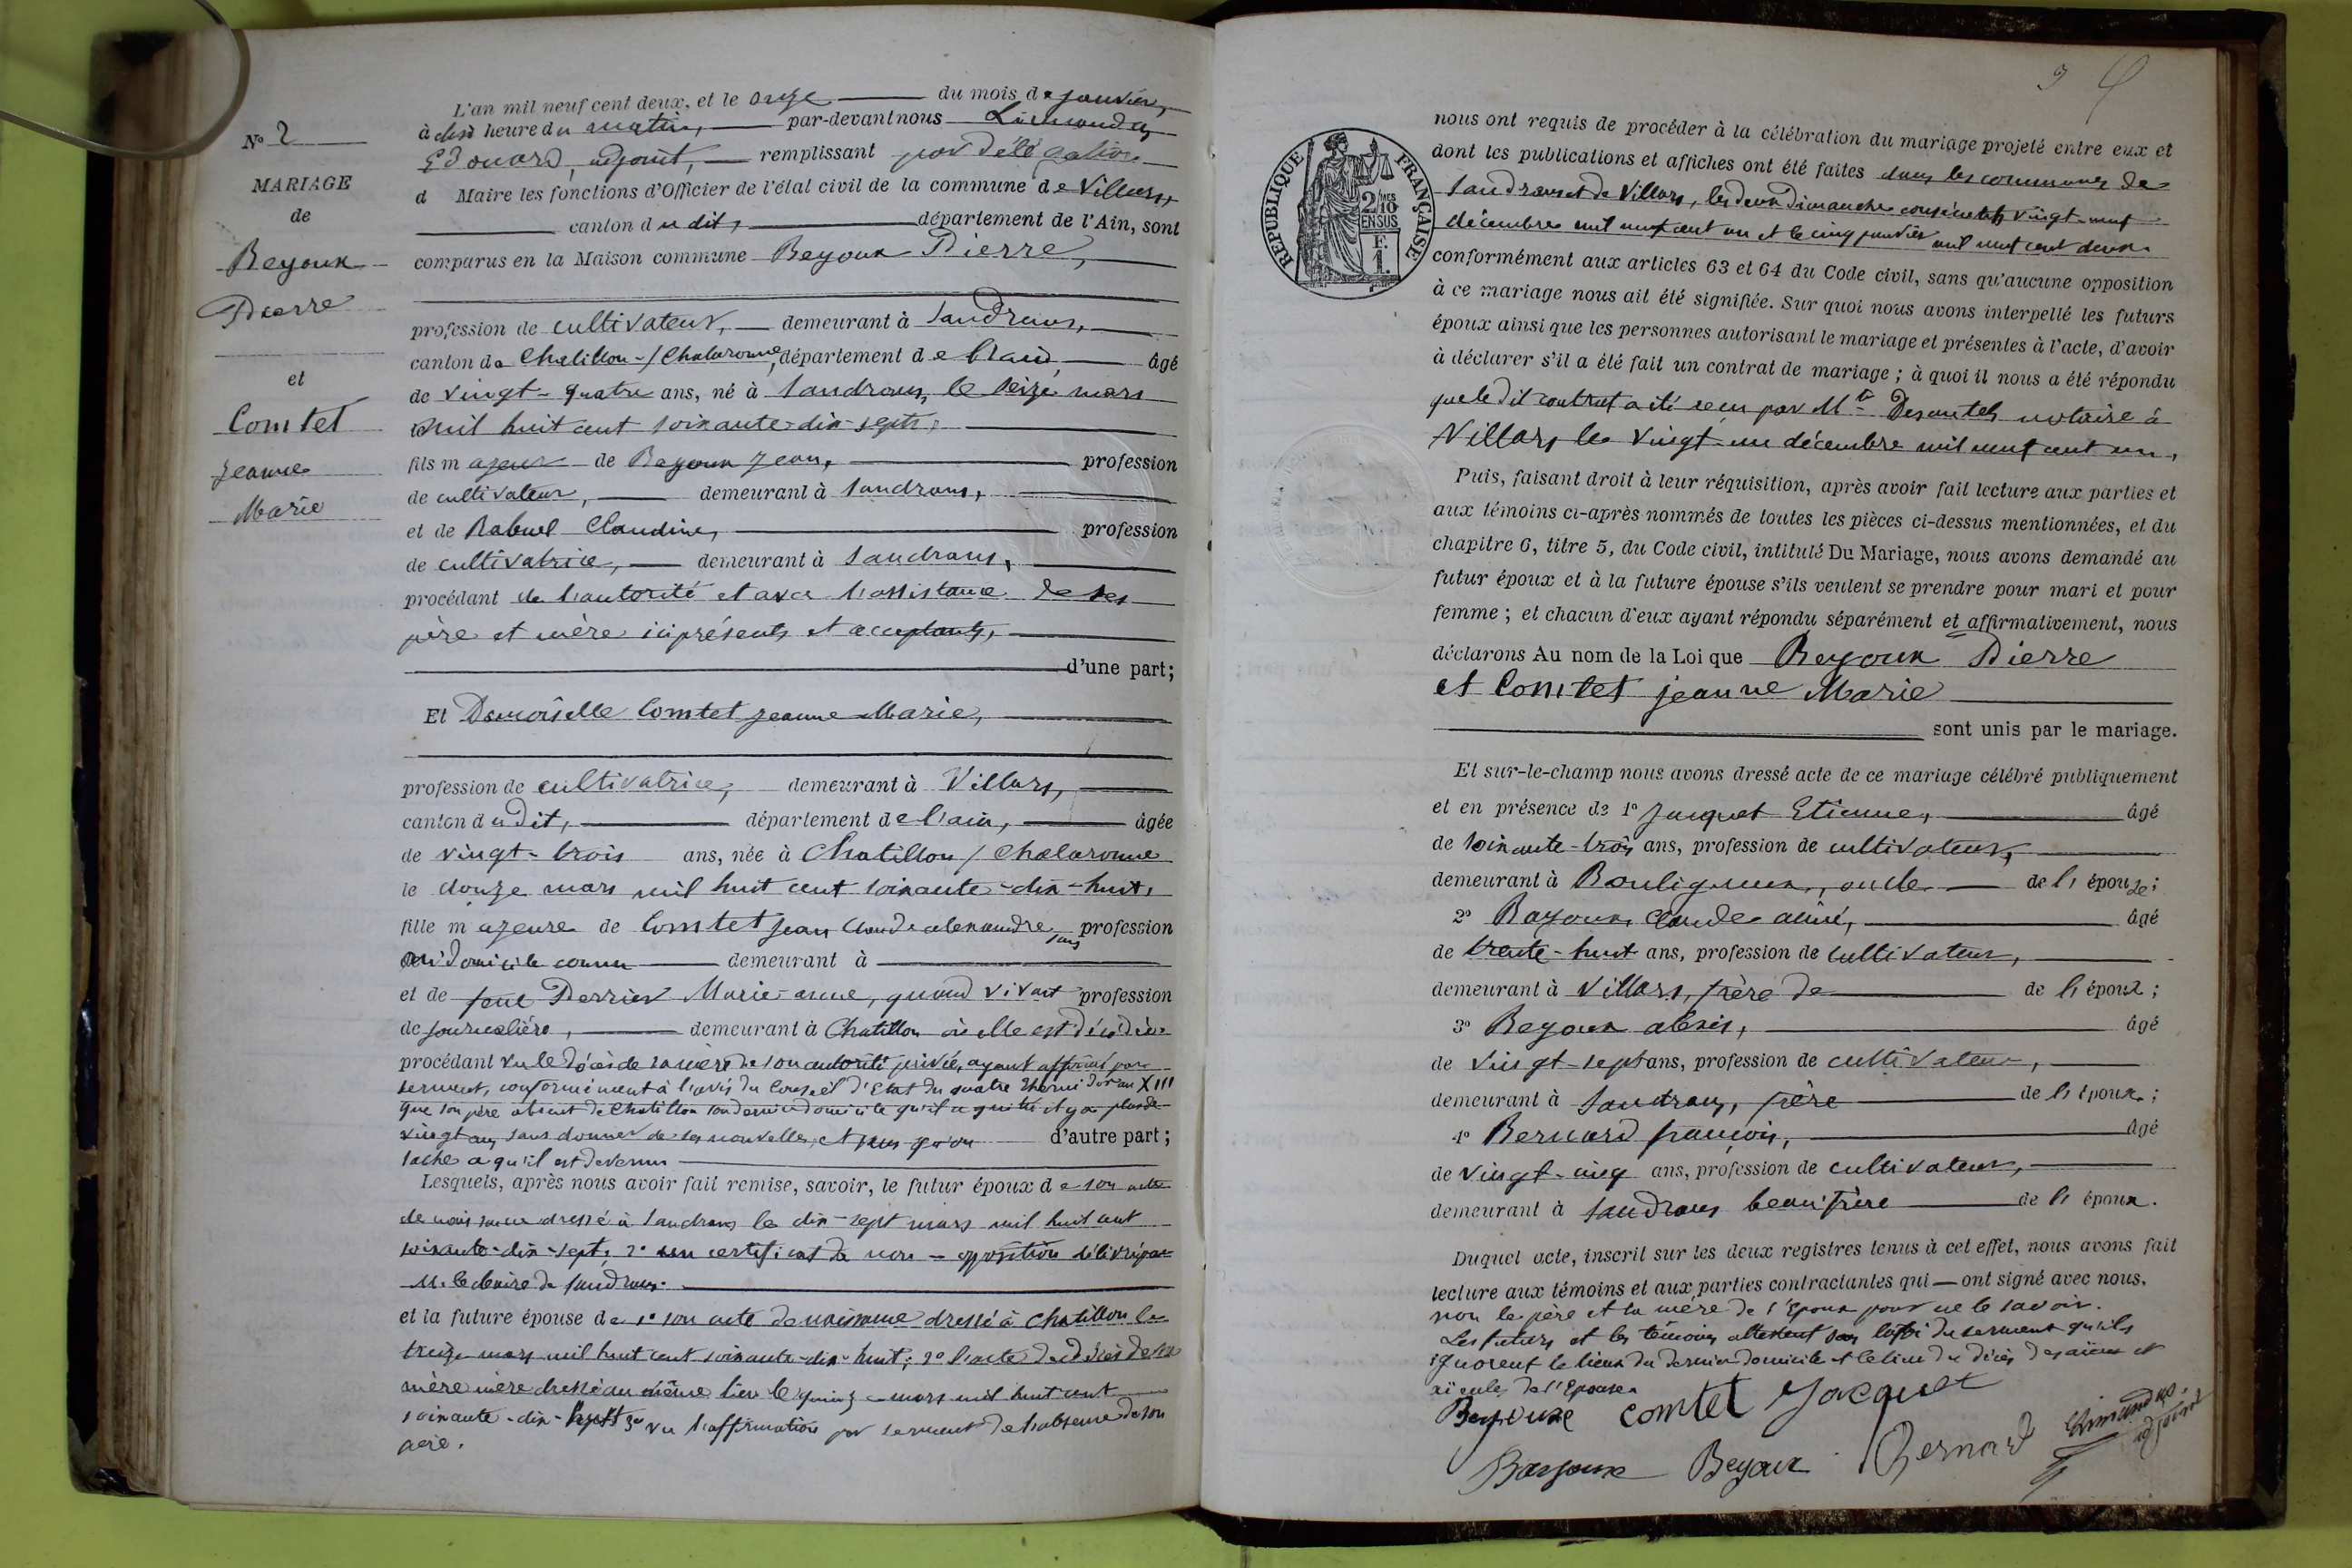 L'an mil neuf cent deux, et le onze du mois de janvier,
à dix heure du matin, par-devant nous
Edouard, adjoint, remplissant par délégation
d Maire les fonctions d'Officier de l'état civil de la commune de Villars,
canton du dit, département de l'Ain, sont
comparus en la Maison commune Beyoux Pierre,
profession de cultivateur, demeurant à Sandrans,
canton de Chatillon-s/Chalaronne, département de l'ain, âgé
de vingt-quatre ans, né à Sandrans, le seize mars
mil huit cent soixante-dix-sept,
fils majeur de Bayoux Jean, profession
de cultivateur, demeurant à Sandrans,
et de Rabuel Claudine, profession
de cultivatrice, demeurant à Sandrans,
procédant de l'autorité et avec l'assistance de ses
père et mère ici présents et acceptants,
d'une part;
Et Demoiselle Comtet Jeanne Marie,
profession de cultivatrice, demeurant à Villars,
canton du dit, département de l'ain, âgée
de vingt-trois ans, née à Chatillon s/ Chalaronne
le douze mars mil huit cent soixante-dix-huit,
fille majeure de Comtet Jean Claude alexandre, sans profession
ni domicile connu demeurant à
et de feue Perrier Marie-anne, quand vivait profession
de journalière, demeurant à Chatillon où elle est décédée
procédant vu le décès de sa mère de son autorité privée, ayant affirmé par
serment, conformément à l'avis du Conseil d'Etat du quatre thermidor an XIII
que son père absent de Chatillon son dernier domicile qu'il a quitté il y a plus de
vingt ans sans donner de ses nouvelles, et sans qu'on d'autre part;
sache ce qu'il est devenu
Lesquels, après nous avoir fait remise, savoir, le futur époux de son acte
de naissance dressé à Sandrans le dix-sept mars mil huit cent
soixante-dix-sept; 2° un certificat de non-opposition délivré par
M. le Maire de Sandrans.
et la future épouse de 1° son acte de naissance dressé à Chatillon le
treize mars mil huit cent soixante-dix-huit; 2° l'acte de décès de sa
mère mère dressé au même lieu le quinze mars mil huit cent
soixante-dix-huit 3° vu l'affirmation par serment de l'absence de son
père.
N° 2
MARIAGE
de
Beyoux
Pierre
et
Comtet
Jeanne
Marie
3
REPUBLIQUE FRANÇAISE
2/10 EN SUS
F.
1.
nous ont requis de procéder à la célébration du mariage projeté entre eux et
dont les publications et affiches ont été faites dans les communes de
Sandrans et de Villars, les deux dimanches consécutifs vingt-neuf
décembre mil neuf cent un et le cinq janvier mil neuf cent deux.
conformément aux articles 63 et 64 du Code civil, sans qu'aucune opposition
à ce mariage nous ait été signifiée. Sur quoi nous avons interpellé les futurs
époux ainsi que les personnes autorisant le mariage et présentes à l'acte, d'avoir
à déclarer s'il a été fait un contrat de mariage; à quoi il nous a été répondu
que le dit contrat a été reçu par Me notaire à
Villars le vingt-un décembre mil neuf cent un,
Puis, faisant droit à leur réquisition, après avoir fait lecture aux parties et
aux témoins ci-après nommés de toutes les pièces ci-dessus mentionnées, et du
chapitre 6, titre 5, du Code civil, intitulé Du Mariage, nous avons demandé au
futur époux et à la future épouse s'ils veulent se prendre pour mari et pour
femme; et chacun d'eux ayant répondu séparément et affirmativement, nous
déclarons Au nom de la Loi que Beyoux Pierre
et Comtet jeanne Marie
sont unis par le mariage.
Et sur-le-champ nous avons dressé acte de ce mariage célébré publiquement
et en présence de 1° Jacquet Etienne, âgé
de soixante-trois ans, profession de cultivateur,
demeurant à Bouligneux, oncle de l'épouse;
2° Bayoux Claude aîné, âgé
de trente-huit ans, profession de cultivateur,
demeurant à Villars, frère de de l'époux;
3° Beyoux alexis, âgé
de vingt-sept ans, profession de cultivateur,
demeurant à Sandrans, frère de l'époux;
4° Bernard françois, âgé
de vingt-cinq ans, profession de cultivateur,
demeurant à Sandrans beau frère de l'époux.
Duquel acte, inscrit sur les deux registres tenus à cet effet, nous avons fait
lecture aux témoins et aux parties contractantes qui — ont signé avec nous.
non le père et la mère de l'époux pour ne le savoir.
Les futurs et les témoins attestent sous la foi du serment qu'ils
ignorent le lieu du dernier domicile et le lieu du décès des aïeux et
aïeules de l'Epouse.
Beyoux Comtet Jacquet
Bayoux Beyoux Bernard
adjoint